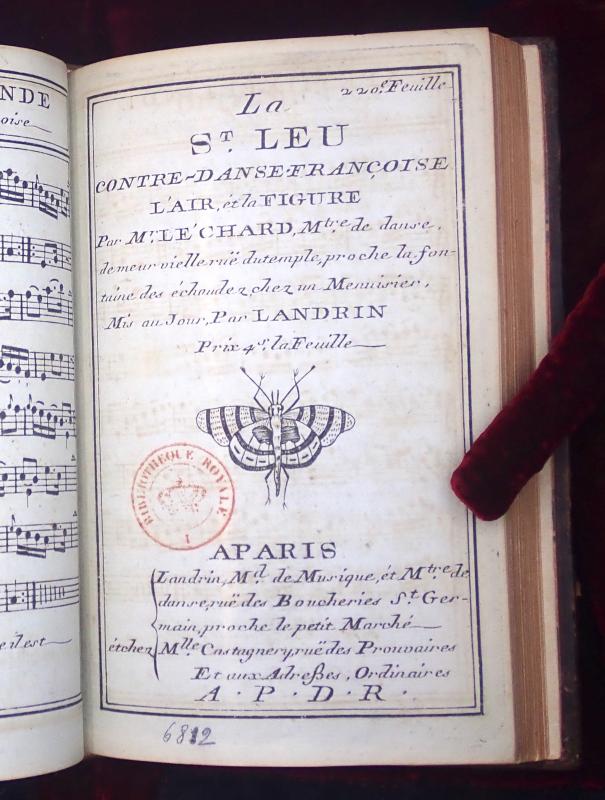 NDE
oise
220e. Feuille
La
ST. LEU
CONTRE-DANSE-FRANÇOISE
L'AIR, ét la FIGURE
Par Mr. LÉCHARD, Mtre de danse,
demeur vielle ruë du temple, proche la fon-
taine des échaudez, chez un Menuisier,
Mis au Jour, Par LANDRIN
Prix 4s. la Feuille
BIBLIOTHEQUE ROYALE
I
A PARIS
Landrin, Md. de Musique, ét Mtre de
danse, ruë des Boucheries St. Ger-
main, proche le petit Marché
ét chez Mlle Castagnery, ruë des Prouvaires
Et aux Adreßes, Ordinaires
A. P. D. R.
e il est
6812